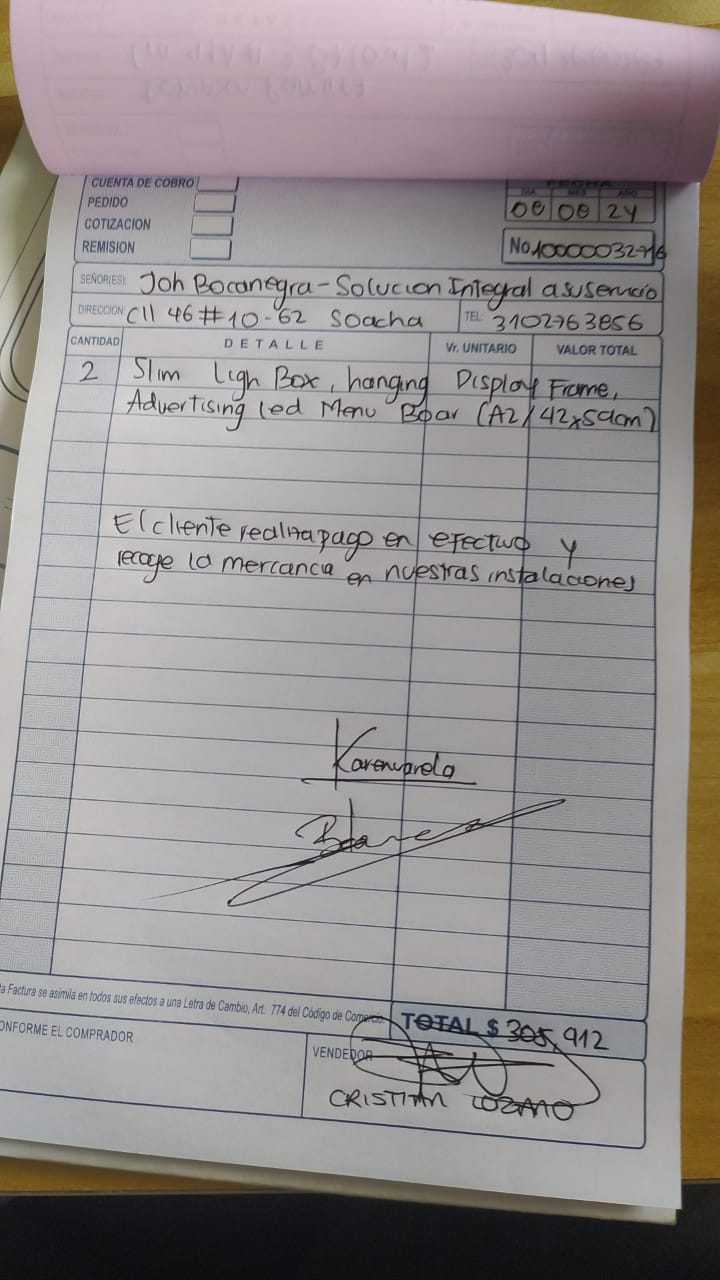 CUENTA DE COBRO
PEDIDO
COTIZACION
REMISION
FECHA
DIA MES AÑO
08 08 24
No. 10000032716
SEÑOR(ES): Joh Bocanegra - Solucion Integral a su servicio
DIRECCION: Cll 46 # 10-62 Soacha TEL: 3102763856
CANTIDAD DETALLE Vr. UNITARIO VALOR TOTAL
2 Slim Ligh Box, hanging Display Frame,
Advertising led Menu Boar (A2/42x59cm)
El cliente realiza pago en efectivo y
recoge la mercancia en nuestras instalaciones
Karen varela
ta Factura se asimila en todos sus efectos a una Letra de Cambio, Art. 774 del Código de Comercio
TOTAL $ 305,912
ONFORME EL COMPRADOR
VENDEDOR
CRISTIAN LOZANO